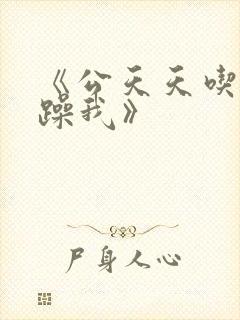 《公天天喫
躁我》
尸身人心